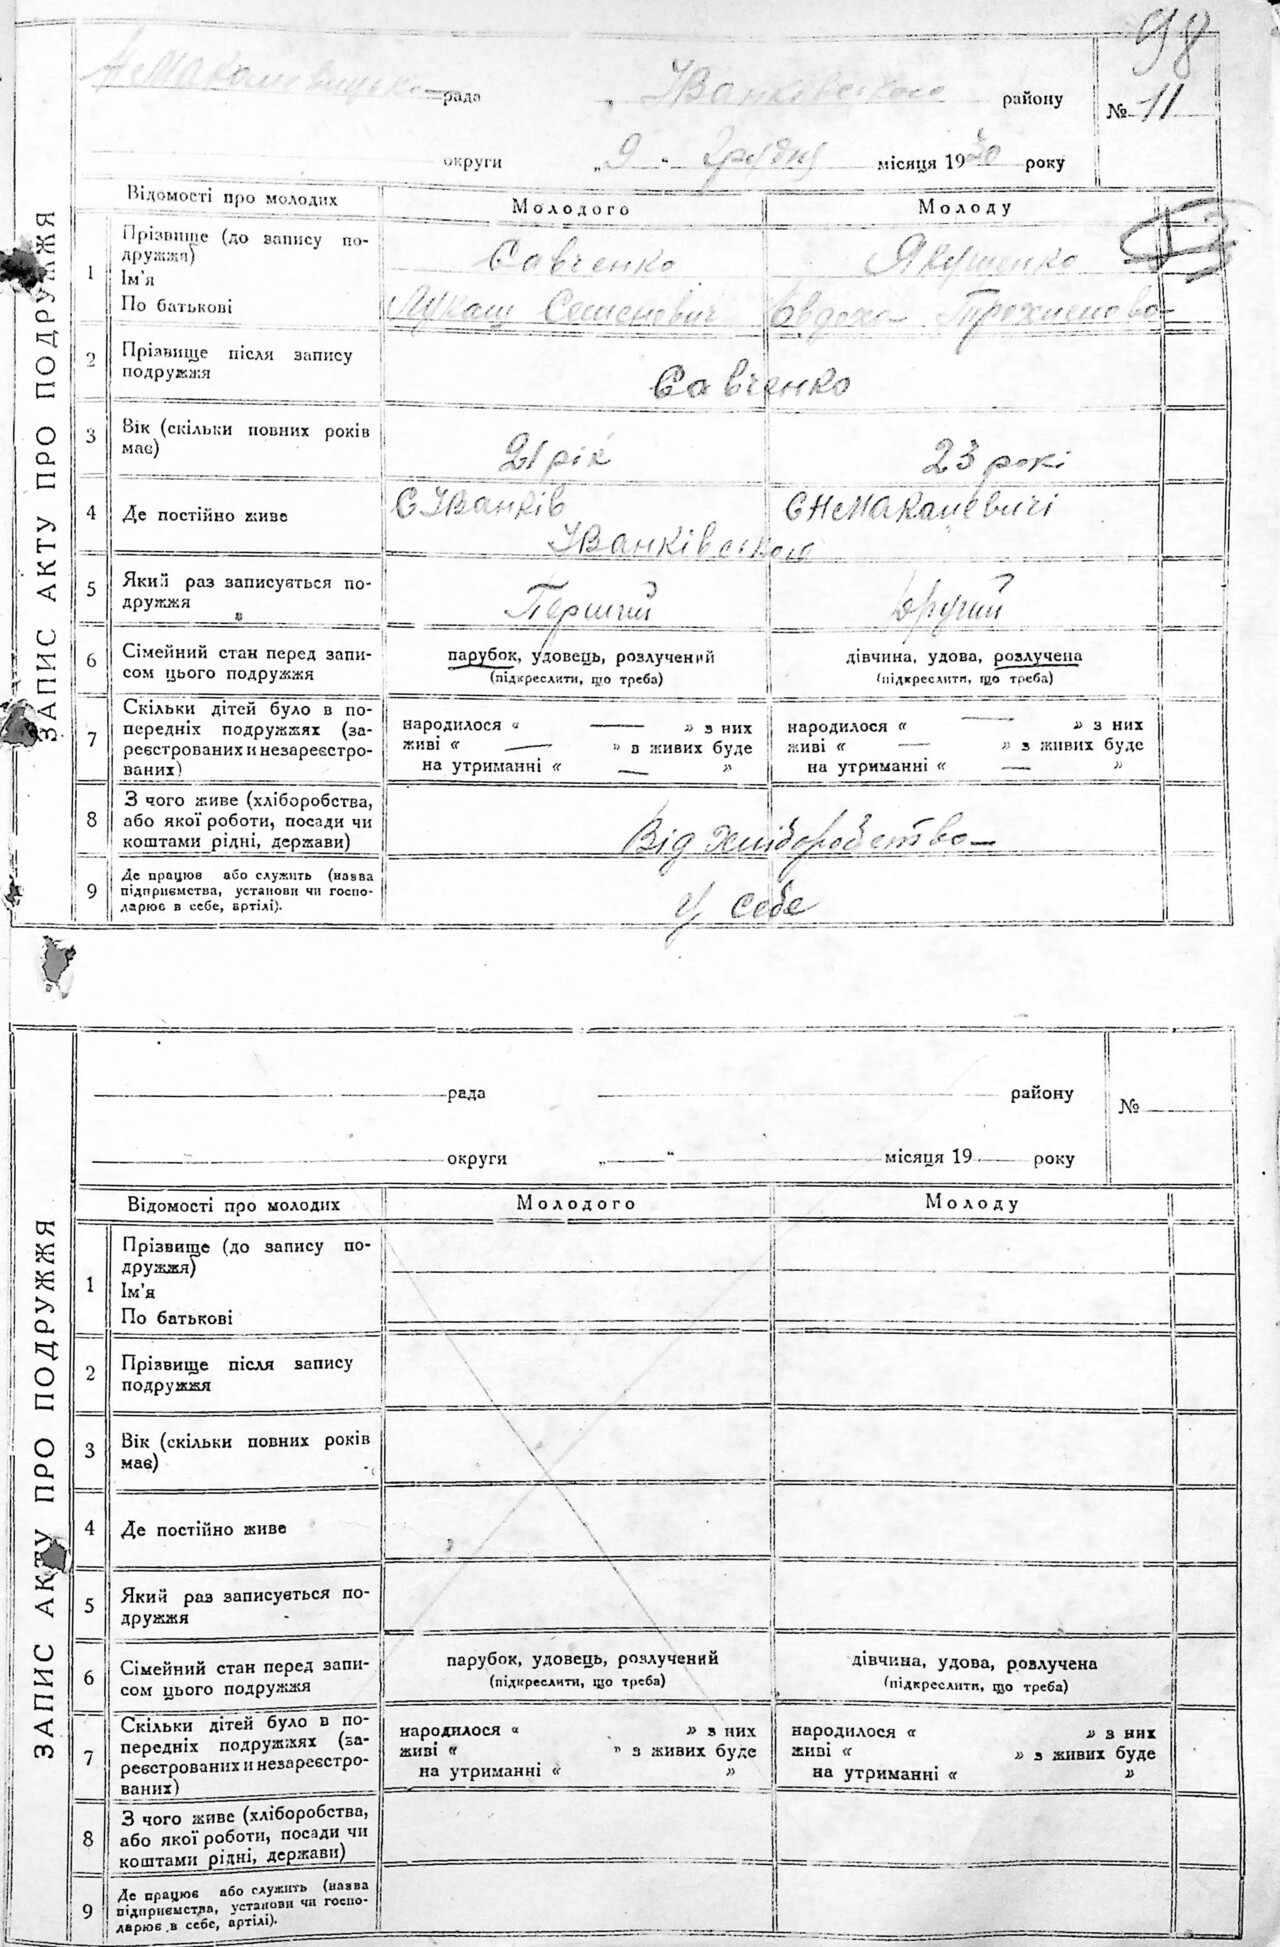 98
НеМакалевицька рада Іванківського району № 11
округи „9" Грудня місяця 1930 року
ЗАПИС АКТУ ПРО ПОДРУЖЖЯ
Відомості про молодих Молодого Молоду
1 Прізвище (до запису по-
дружжя) Савченко Якушенко
Ім'я
По батькові Лукаш Семенович Овдоха Трохимова
2 Прізвище після запису
подружжя Савченко
3 Вік (скільки повних років
має) 21 рік 23 рокі
4 Де постійно живе С Іванків С НеМакалевичі
Іванківського
5 Який раз записується по-
дружжя Перший Другий
6 Сімейний стан перед запи-
сом цього подружжя парубок, удовець, розлучений дівчина, удова, розлучена
(підкреслити, що треба) (підкреслити, що треба)
7 Скільки дітей було в по-
передніх подружжях (за-
реєстрованих и незареєстро-
ваних)
народилося « — » з них народилося « — » з них
живі « — » в живих буде живі « — » з живих буде
на утриманні « — » на утриманні « — »
8 З чого живе (хліборобства,
або якої роботи, посади чи
коштами рідні, держави) Від хліборобства
9 Де працює або служить (назва
підприємства, установи чи госпо-
дарює в себе, артілі). У себе
рада району №
округи „ " місяця 19 року
ЗАПИС АКТУ ПРО ПОДРУЖЖЯ
Відомості про молодих Молодого Молоду
1 Прізвище (до запису по-
дружжя)
Ім'я
По батькові
2 Прізвище після запису
подружжя
3 Вік (скільки повних років
має)
4 Де постійно живе
5 Який раз записується по-
дружжя
6 Сімейний стан перед запи-
сом цього подружжя парубок, удовець, розлучений дівчина, удова, розлучена
(підкреслити, що треба) (підкреслити, що треба)
7 Скільки дітей було в по-
передніх подружжях (за-
реєстрованих и незареєстро-
ваних)
народилося « » з них народилося « » з них
живі « » з живих буде живі « » з живих буде
на утриманні « » на утриманні « »
8 З чого живе (хліборобства,
або якої роботи, посади чи
коштами рідні, держави)
9 Де працює або служить (назва
підприємства, установи чи госпо-
дарює в себе, артілі).